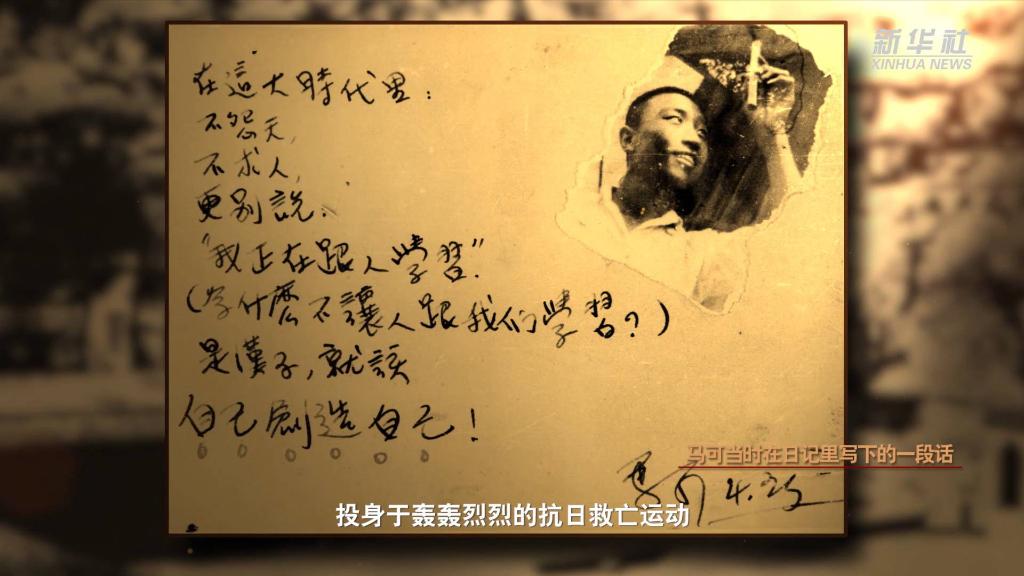 新华社
XINHUA NEWS
在這大時代里：
不怨天，
不求人，
更别說：
“我正在跟人學習”.
(为什麽不讓人跟我们學習？)
是漢子，就該
自己創造自己！
马可当时在日记里写下的一段话
马可
投身于轰轰烈烈的抗日救亡运动